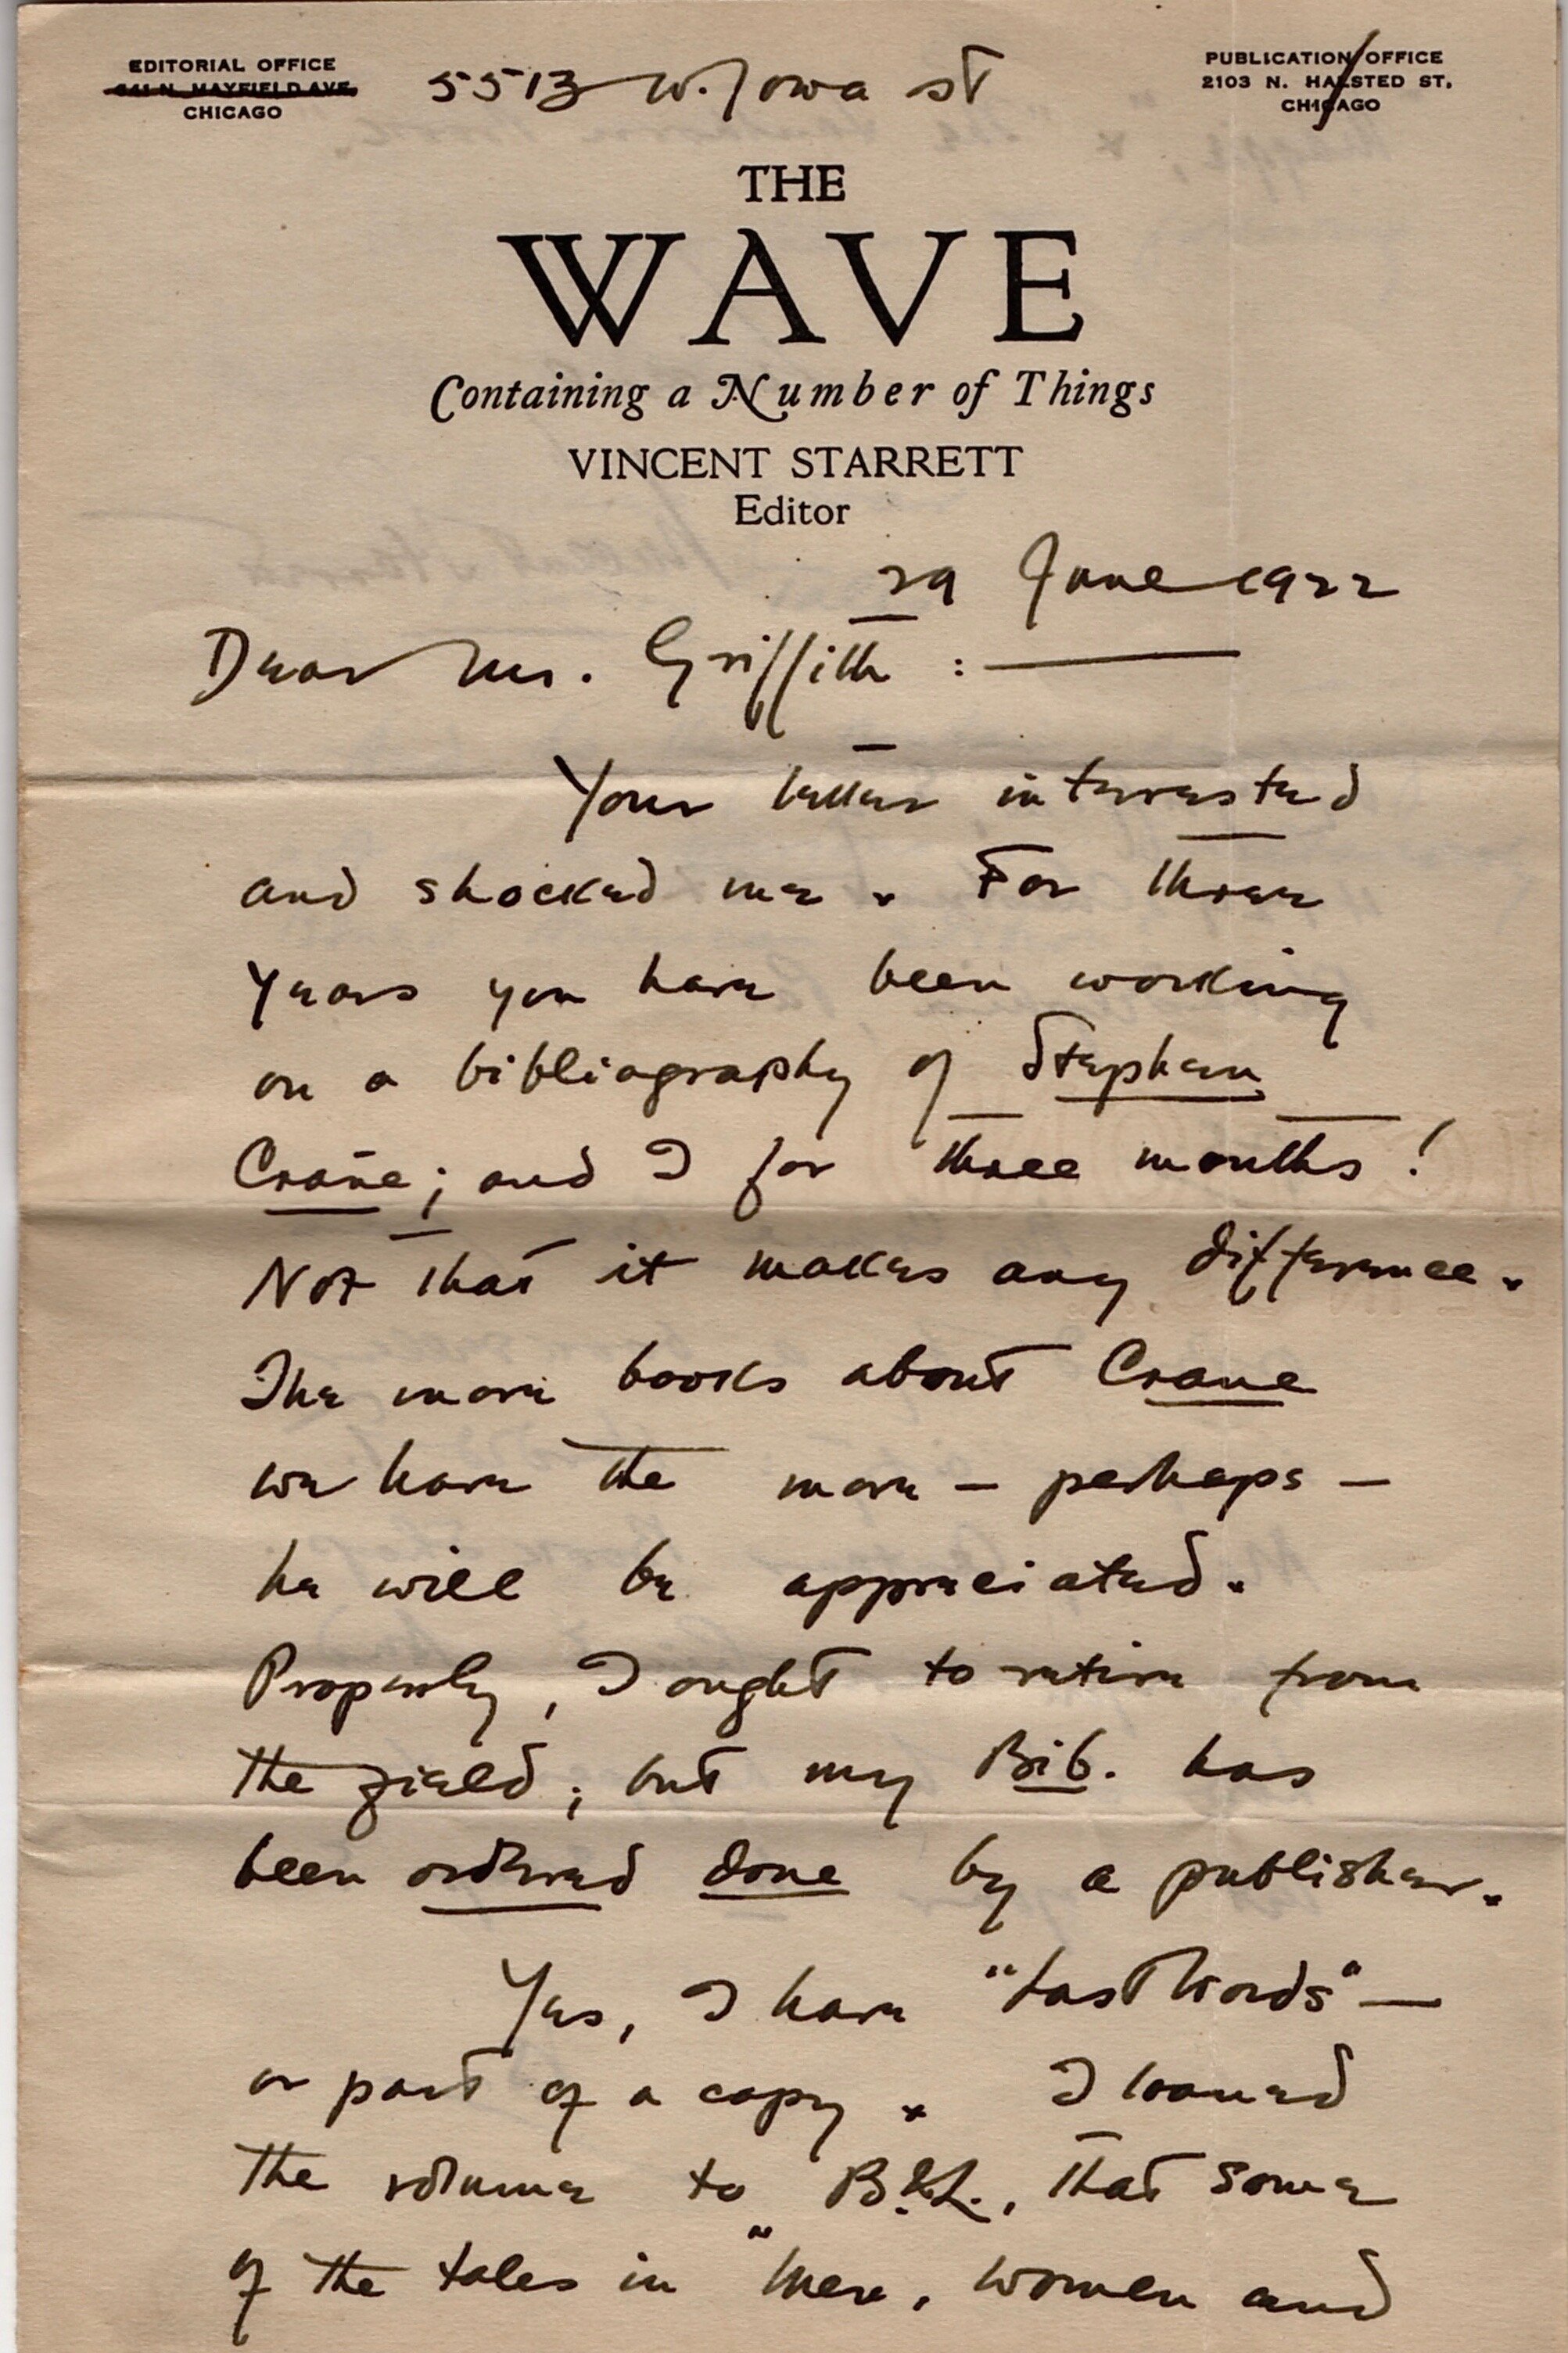 EDITORIAL OFFICE
MAYFIELD AVE.
CHICAGO
5513 W. Iowa st
PUBLICATION OFFICE
2103 N. HALSTED ST.
CHICAGO
THE
WAVE
Containing a Number of Things
VINCENT STARRETT
Editor
29 June 1922
Dear Mr. Griffith :—
Your letter interested
and shocked me. For three
years you have been working
on a bibliography of Stephen
Crane; and I for three months!
Not that it makes any difference.
The more books about Crane
we have the more — perhaps —
he will be appreciated.
Properly, I ought to retire from
the field; but my Bib. has
been ordered done by a publisher.
Yes, I have "Last Words" —
or part of a copy. I loaned
the volume to B.&L., that some
of the tales in "Men, Women and